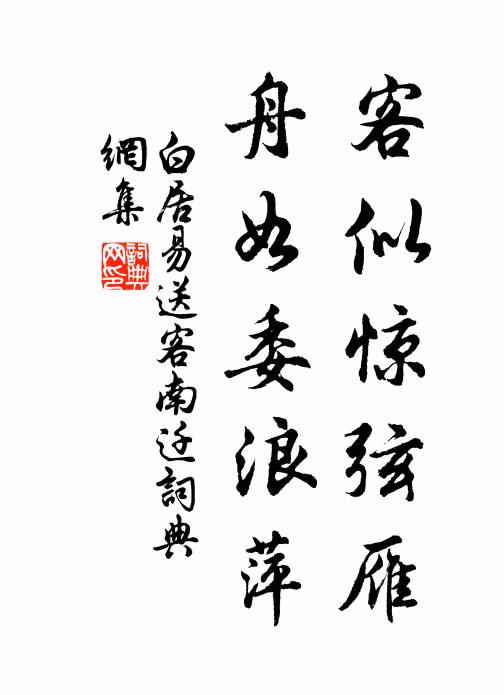 客似惊弦雁
舟如委浪萍
白居易送客南迁詞典
網集
詞典网印